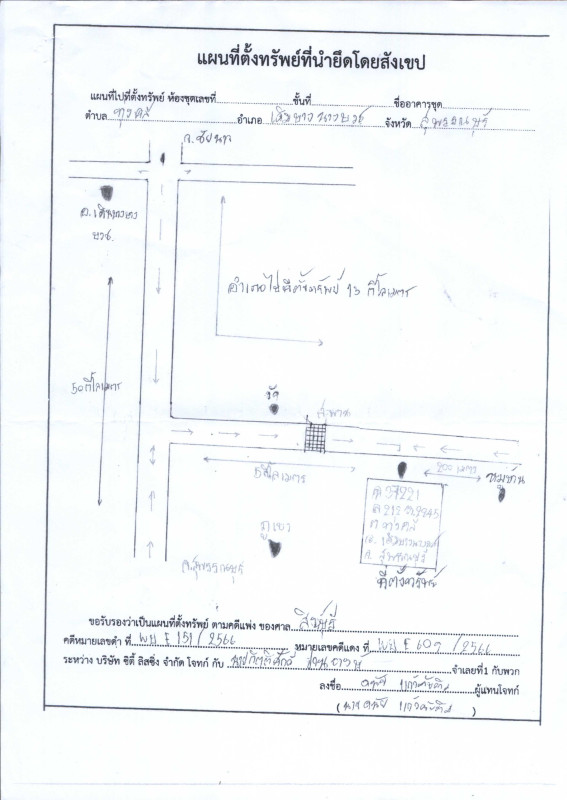 แผนที่ตั้งทรัพย์ที่นำยึดโดยสังเขป
แผนที่ไปที่ตั้งทรัพย์ ห้องชุดเลขที่ ชั้นที่ ชื่ออาคารชุด
ตำบล ทุ่งคลี อำเภอ เดิมบางนางบวช จังหวัด สุพรรณบุรี
จ.ชัยนาท
อ.เดิมบางนาง
บวช.
อำเภอไปที่ตั้งทรัพย์ 13 กิโลเมตร
50 กิโลเมตร
วัด
สะพาน
5 กิโลเมตร
200 เมตร
หมู่บ้าน
ภูเขา
ต. ทุ่งคลี
อ. เดิมบางนางบวช
จ. สุพรรณบุรี
ที่ตั้งทรัพย์
จ.สุพรรณบุรี
ขอรับรองว่าเป็นแผนที่ตั้งทรัพย์ ตามคดีแพ่ง ของศาล
คดีหมายเลขดำ ที่ ผบ E 151/2566 หมายเลขคดีแดง ที่ ผบ E 607 /2566
ระหว่าง บริษัท ซิตี้ ลิสซิ่ง จำกัด โจทก์ กับ จำเลยที่1 กับพวก
ลงชื่อ ผู้แทนโจทก์